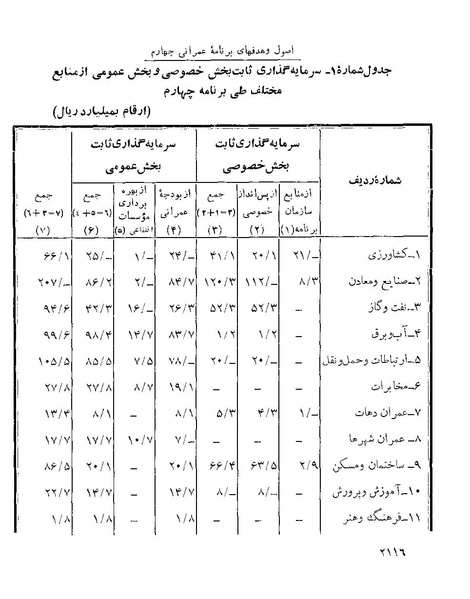 اصول وهدفهای برنامهٔ عمرانی چهارم
جدول شمارهٔ ۱ـ سرمایه‌گذاری ثابت بخش خصوصی و بخش عمومی از منابع
مختلف طی برنامه چهارم
(ارقام بمیلیارد ریال)
شمارهٔ ردیف
سرمایه گذاری ثابت
بخش خصوصی
سرمایه گذاری ثابت
بخش عمومی
از منابع
سازمان
برنامه (۱)
از پس‌انداز
خصوصی
(۲)
جمع
(۳=۱+۲)
(۳)
از بودجهٔ
عمرانی
(۴)
از بهره
برداری
مؤسسات
انتفاعی (۵)
جمع
(۶=۵+۴)
(۶)
جمع
(۷=۳+۶)
(۷)
۱ـ کشاورزی ۲۱/– ۲۰/۱ ۴۱/۱ ۲۴/– ۱/– ۲۵/– ۶۶/۱
۲ـ صنایع ومعادن ۸/۳ ۱۱۲/– ۱۲۰/۳ ۸۴/۷ ۲/– ۸۶/۲ ۲۰۷/–
۳ـ نفت وگاز – ۵۲/۳ ۵۲/۳ ۲۶/۳ ۱۶/– ۴۲/۳ ۹۴/۶
۴ـ آب وبرق – ۱/۲ ۱/۲ ۸۳/۷ ۱۴/۷ ۹۸/۴ ۹۹/۶
۵ـ ارتباطات وحمل ونقل – ۲۰/– ۲۰/– ۷۸/– ۷/۵ ۸۵/۵ ۱۰۵/۵
۶ـ مخابرات – – – ۱۹/۱ ۸/۷ ۲۷/۸ ۲۷/۸
۷ـ عمران دهات ۱/– ۴/۳ ۵/۳ ۸/۱ – ۸/۱ ۱۳/۴
۸ـ عمران شهرها – – – ۷/– ۱۰/۷ ۱۷/۷ ۱۷/۷
۹ـ ساختمان ومسکن ۲/۹ ۶۳/۵ ۶۶/۴ ۲۰/۱ – ۲۰/۱ ۸۶/۵
۱۰ـ آموزش وپرورش – ۸/– ۸/– ۱۴/۷ – ۱۴/۷ ۲۲/۷
۱۱ـ فرهنگ وهنر – – – ۱/۸ – ۱/۸ ۱/۸
۲۱۱۶